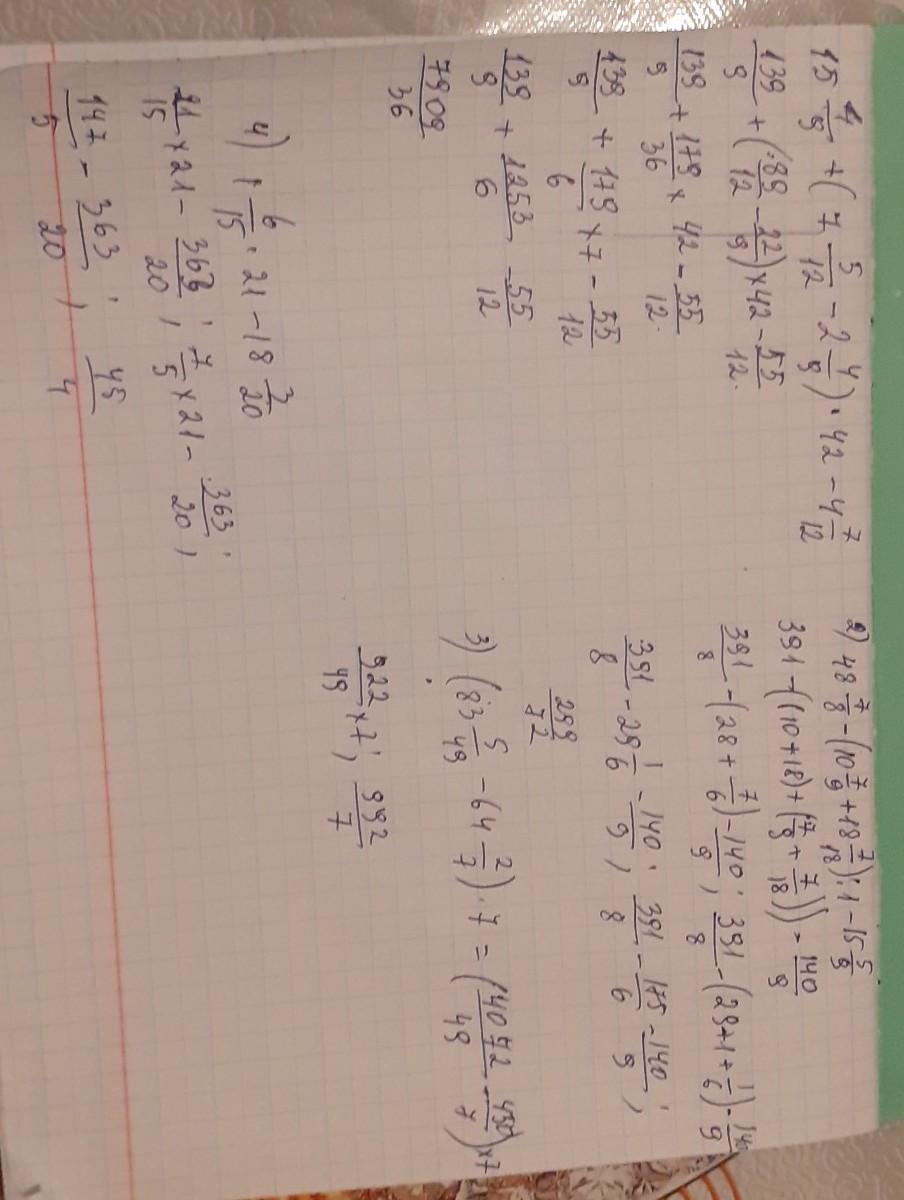 15 4/9 + (7 5/12 - 2 4/9) · 42 - 4 7/12
139/9 + (89/12 - 22/9) × 42 - 55/12
139/9 + 179/36 × 42 - 55/12
139/9 + 179/6 × 7 - 55/12
139/9 + 1253/6 - 55/12
7909/36
4) 1 6/15 · 21 - 18 3/20
21/15 × 21 - 363/20 ; 7/5 × 21 - 363/20 ;
147/5 - 363/20 ; 45/4
2) 48 7/8 - (10 7/9 + 18 7/18) : 1 - 15 5/9
391 - ((10 + 18) + (7/9 + 7/18)) - 140/9
391/8 - (28 + 7/6) - 140/9 ; 391/8 - (28 + 1 + 1/6) - 140/9
391/8 - 29 1/6 - 140/9 ; 391/8 - 175/6 - 140/9 ;
299/72
3) (83 5/49 - 64 2/7) · 7 = (4072/49 - 450/7) × 7
922/49 × 7 ; 992/7